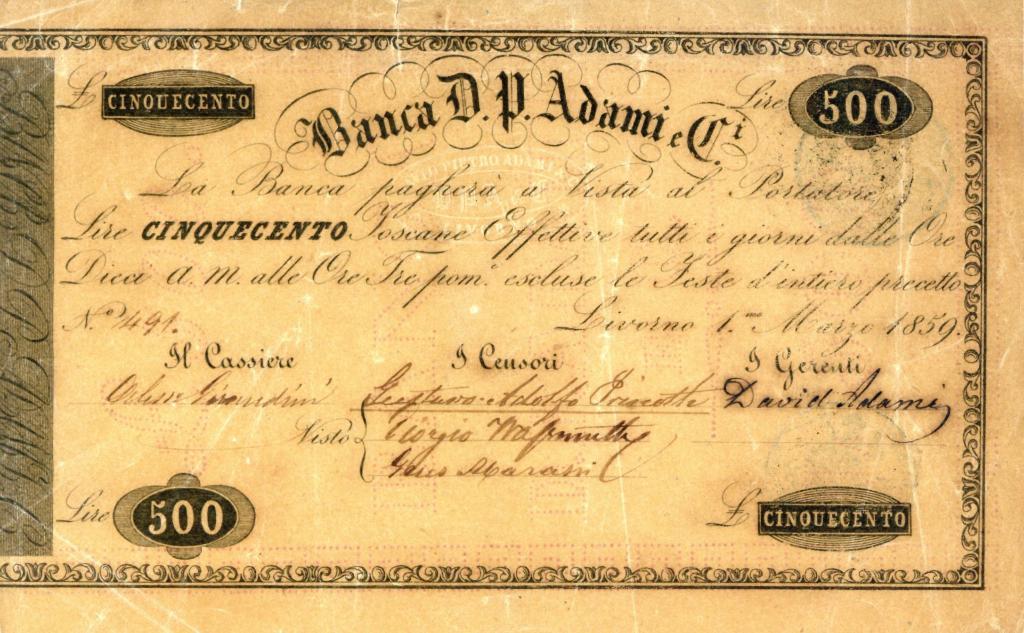 £ CINQUECENTO
Banca D. P. Adami e C.i
Lire 500
La Banca pagherà a Vista al Portatore
Lire CINQUECENTO Toscane Effettive tutti i giorni dalle Ore
Dieci a. m. alle Ore Tre pom.e escluse le Feste d'intiero precetto
N.o 491.
Livorno 1.mo Marzo 1859.
Il Cassiere
I Censori
I Gerenti
Gustavo Adolfo
David Adami
Visto
Giorgio
Lire 500
£ CINQUECENTO